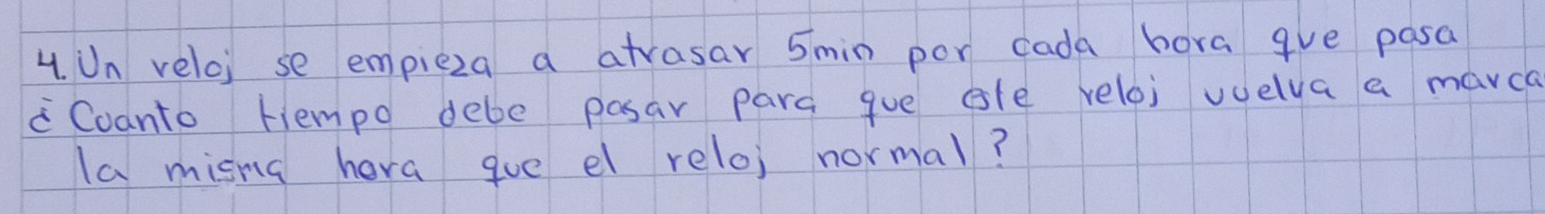 4. Un reloj se empieza a atrasar 5min por cada hora que pasa
¿Cuanto tiempo debe pasar para que este reloj vuelva a marca
la misma hora que el reloj normal?